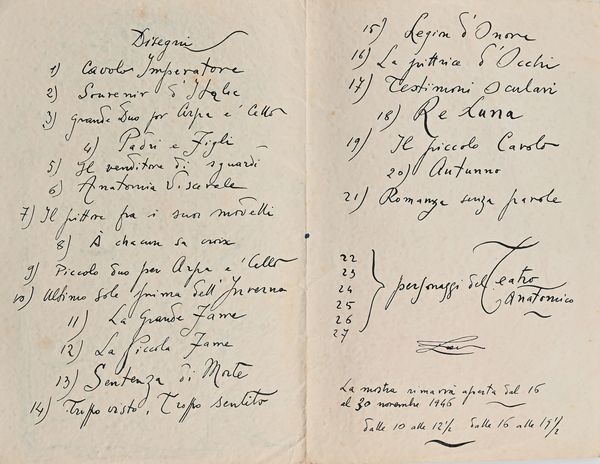 Disegni
1) Cavolo Imperatore
2) Souvenir d'Italie
3) Grande Duo per Arpa e Cello
4) Padri e Figli
5) Il venditore di sguardi
6) Anatomia Viscerale
7) Il pittore fra i suoi modelli
8) À chacun sa croix
9) Piccolo duo per Arpa e Cello
10) Ultimo Sole prima dell'Inverno
11) La Grande Fame
12) La Piccola Fame
13) Sentenza di Morte
14) Troppo visto, Troppo sentito
15) Legion d'Onore
16) La pittrice d'Occhi
17) Testimoni oculari
18) Re Luna
19) Il piccolo Cavolo
20) Autunno
21) Romanza senza parole
22
23
24
25
26
27
personaggi del Teatro
Anatomico
La mostra rimarrà aperta dal 16
al 30 novembre 1946
dalle 10 alle 12½ dalle 16 alle 19½